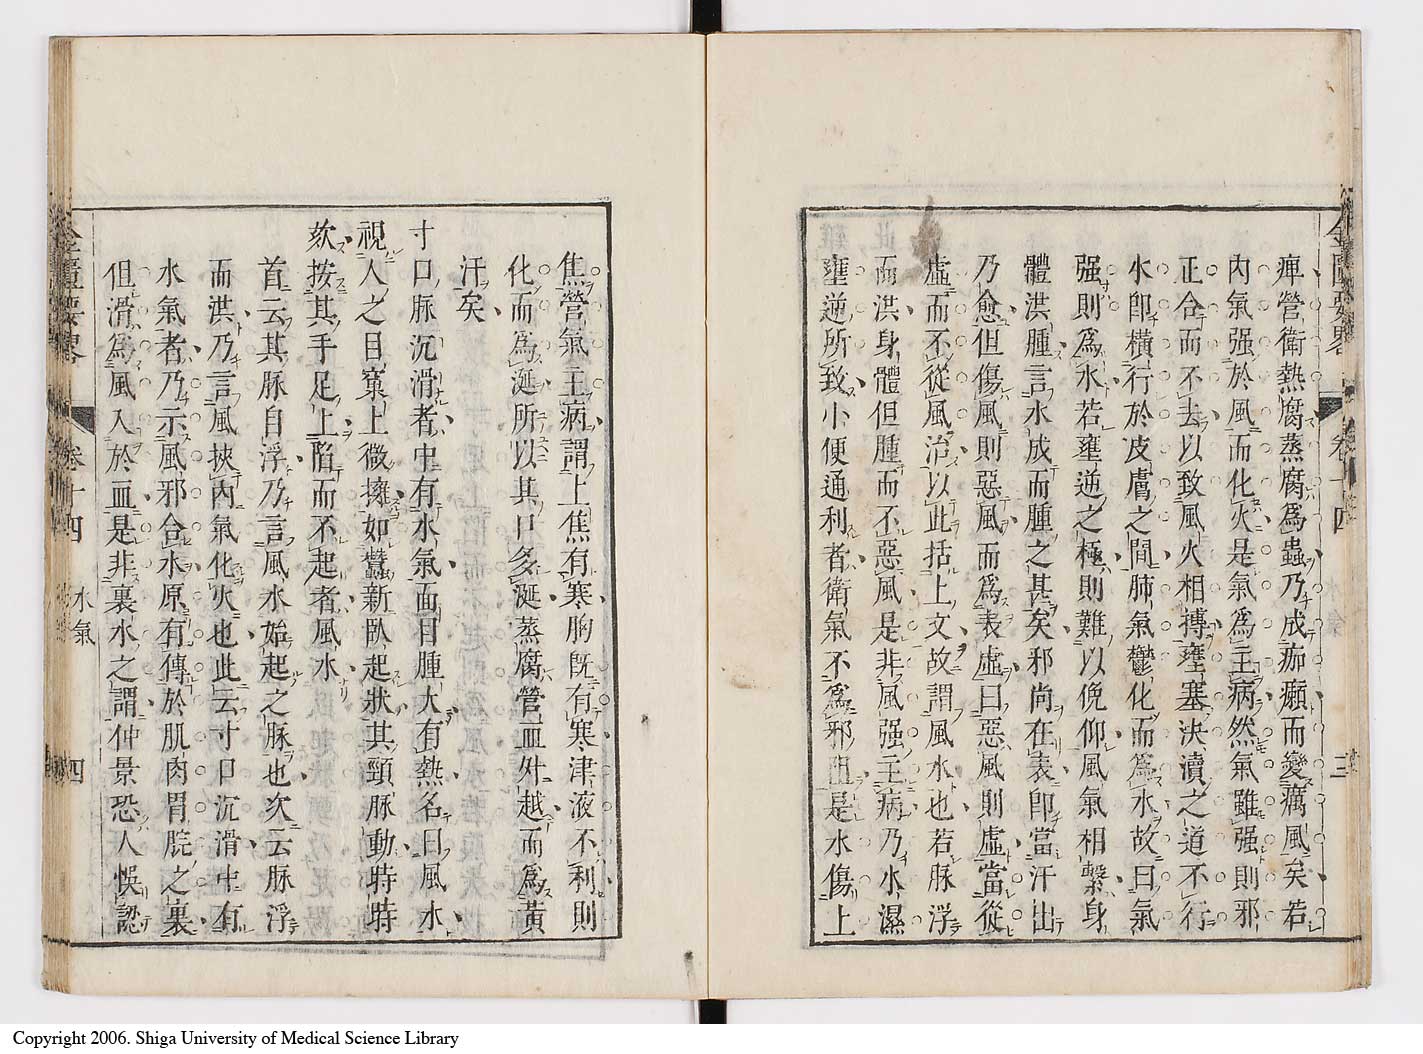 金匱要略 卷十四 三
痺營衛熱腐蒸腐爲蟲乃成痂癩而變癘風矣若
内氣强於風而化火是氣爲主病然氣雖强則邪
正合而不去以致風火相搏壅塞決瀆之道不行
水卽橫行於皮膚之間肺氣鬱化而爲水故曰氣
强則爲水若壅逆之極則難以俛仰風氣相繫身
體洪腫言水成而腫之甚矣邪尚在表卽當汗出
乃愈但傷風則惡風而爲表虛曰惡風則虛當從
虛而不從風治以此括上文故謂風水也若脉浮
而洪身體但腫而不惡風是非風强主病乃水濕
壅逆所致小便通利者衛氣不爲邪阻是水傷上
焦營氣主病謂上焦有寒胸旣有寒津液不利則
化而爲涎所以其口多涎蒸腐營血外越而爲黃
汗矣
寸口脉沉滑者中有水氣面目腫大有熱名曰風水
視人之目窠上微擁如蠶新臥起狀其頸脉動時時
欬按其手足上陷而不起者風水
首云其脉自浮乃言風水始起之脉也次云脉浮
而洪乃言風挾内氣化火也此云寸口沉滑中有
水氣者乃示風邪合水原有傳於肌肉胃脘之裏
但滑爲風入於血是非裏水之謂仲景恐人悞認
金匱要略 卷十四 水氣 四
Copyright 2006. Shiga University of Medical Science Library